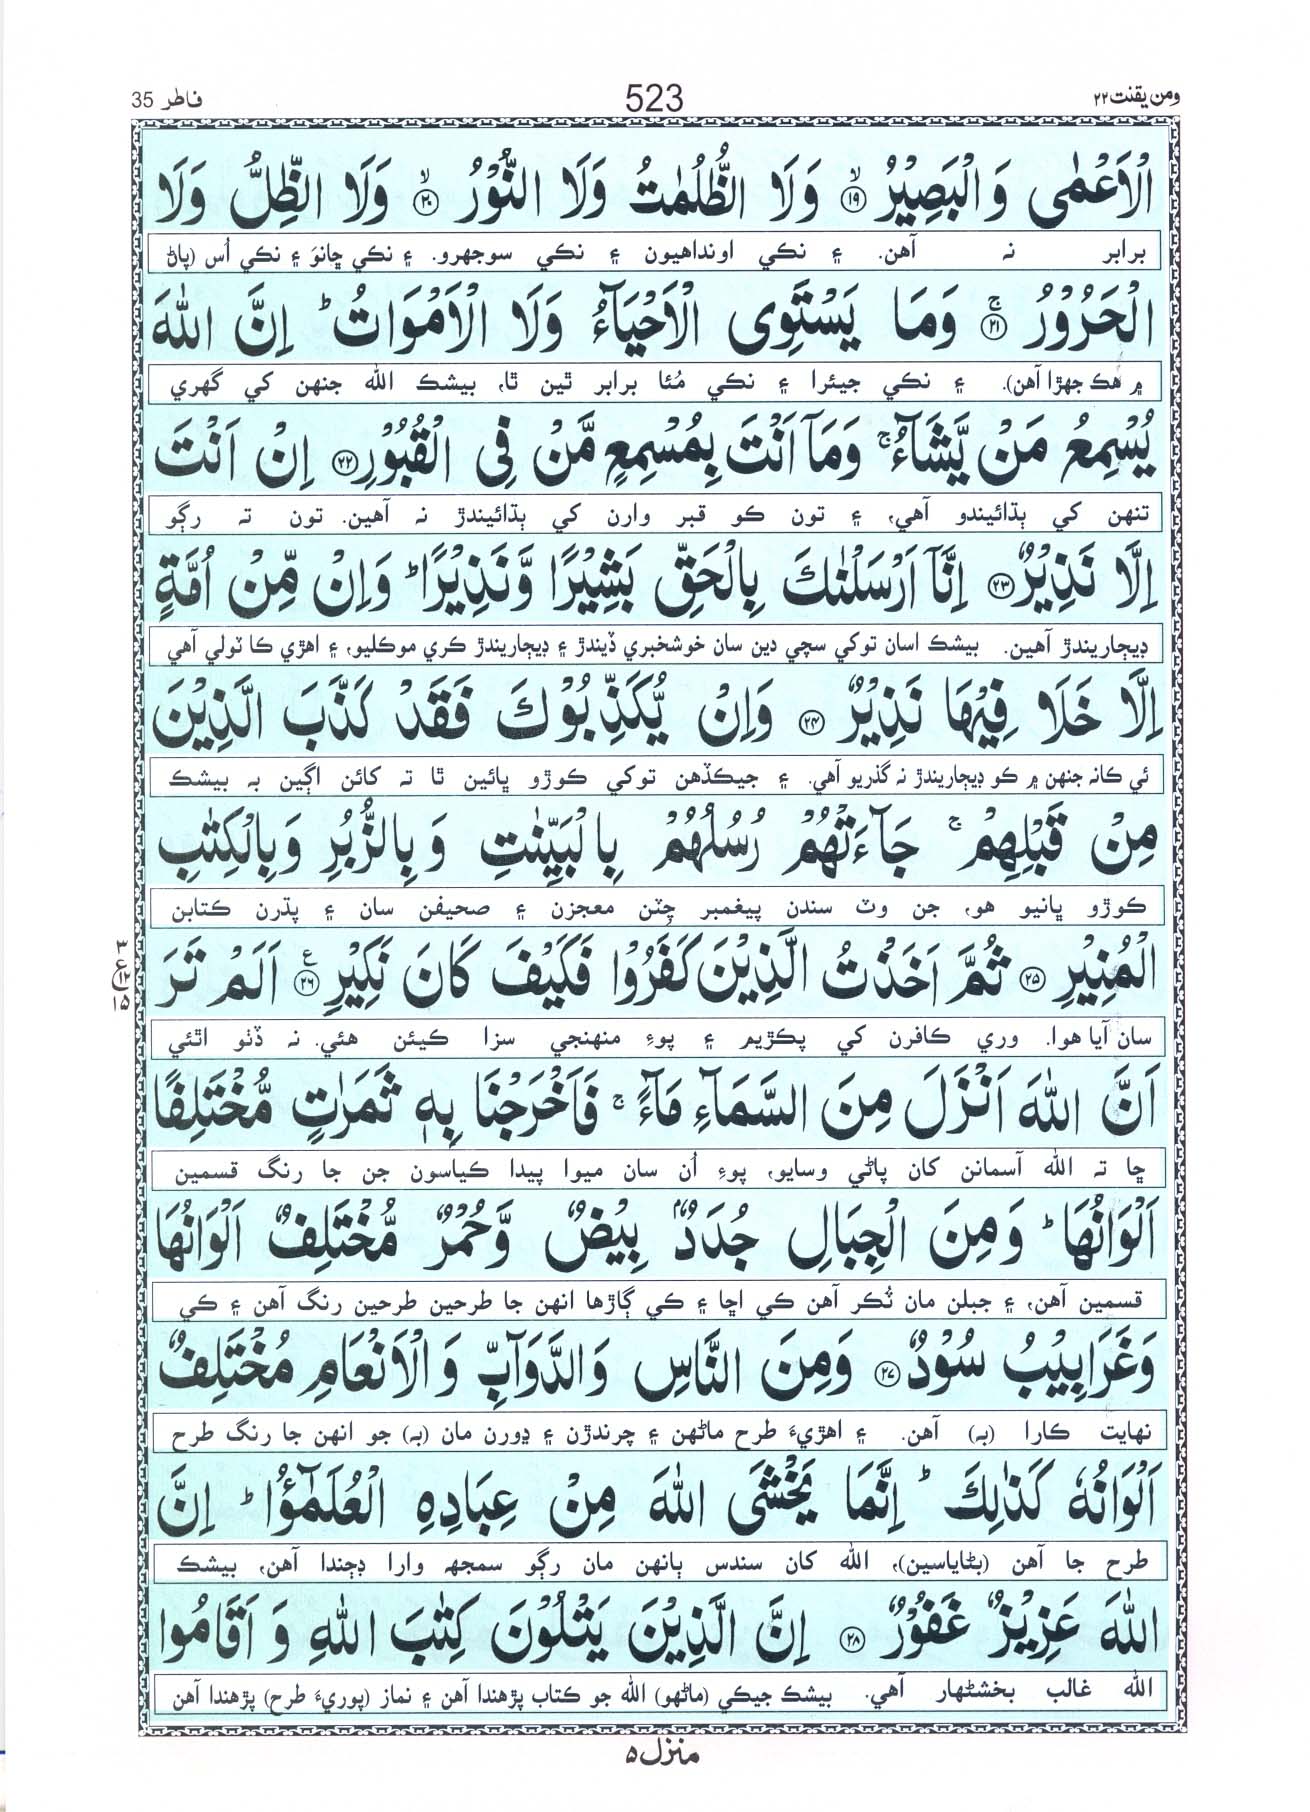 ومن يقنت٢٢ 523 فاطر 35
الْاَعْمٰى وَ الْبَصِيْرُ ۙ‏﴿۱۹﴾ وَ لَا الظُّلُمٰتُ وَ لَا النُّوْرُ ۙ‏﴿۲۰﴾ وَ لَا الظِّلُّ وَ لَا
برابر نہ آهن. ۽ نڪي اونداهيون ۽ نڪي سوجهرو. ۽ نڪي ڇانوَ ۽ نڪي اُس (پاڻ
الْحَرُوْرُ ۚ‏﴿۲۱﴾ وَ مَا يَسْتَوِى الْاَحْيَآءُ وَ لَا الْاَمْوَاتُ ؕ اِنَّ اللّٰهَ
۾ هڪ جهڙا آهن). ۽ نڪي جيئرا ۽ نڪي مُئا برابر ٿين ٿا، بيشڪ الله جنهن کي گھري
يُسْمِعُ مَنْ يَّشَآءُ ۚ وَ مَاۤ اَنْتَ بِمُسْمِعٍ مَّنْ فِى الْقُبُوْرِ ‏﴿۲۲﴾ اِنْ اَنْتَ
تنهن کي ٻڌائيندو آهي، ۽ تون ڪو قبر وارن کي ٻڌائيندڙ نہ آهين. تون تہ رڳو
اِلَّا نَذِيْرٌ ‏﴿۲۳﴾ اِنَّاۤ اَرْسَلْنٰكَ بِالْحَقِّ بَشِيْرًا وَّ نَذِيْرًا ؕ وَ اِنْ مِّنْ اُمَّةٍ
ڊيڄاريندڙ آهين. بيشڪ اسان توکي سچي دين سان خوشخبري ڏيندڙ ۽ ڊيڄاريندڙ ڪري موڪليو، ۽ اهڙي ڪا ٽولي آهي
اِلَّا خَلَا فِيْهَا نَذِيْرٌ ‏﴿۲۴﴾ وَ اِنْ يُّكَذِّبُوْكَ فَقَدْ كَذَّبَ الَّذِيْنَ
ئي ڪانہ جنهن ۾ ڪو ڊيڄاريندڙ نہ گذريو آهي. ۽ جيڪڏهن توکي ڪوڙو ڀائين ٿا تہ کائن اڳين بہ بيشڪ
مِنْ قَبْلِهِمْ ۚ جَآءَتْهُمْ رُسُلُهُمْ بِالْبَيِّنٰتِ وَ بِالزُّبُرِ وَ بِالْكِتٰبِ
ڪوڙو ڀانيو هو، جن وٽ سندن پيغمبر چِٽن معجزن ۽ صحيفن سان ۽ پڌرن ڪتابن
الْمُنِيْرِ ‏﴿۲۵﴾ ثُمَّ اَخَذْتُ الَّذِيْنَ كَفَرُوْا فَكَيْفَ كَانَ نَكِيْرِ ‏﴿۲۶﴾ ع اَلَمْ تَرَ
٣ ع ١٢ ١٥
سان آيا هوا. وري ڪافرن کي پڪڙيم ۽ پوءِ منهنجي سزا ڪيئن هئي. نہ ڏٺو اٿئي
اَنَّ اللّٰهَ اَنْزَلَ مِنَ السَّمَآءِ مَآءً ۚ فَاَخْرَجْنَا بِهٖ ثَمَرٰتٍ مُّخْتَلِفًا
ڇا تہ الله آسمانن کان پاڻي وسايو، پوءِ اُن سان ميوا پيدا ڪياسون جن جا رنگ قسمين
اَلْوَانُهَا ؕ وَ مِنَ الْجِبَالِ جُدَدٌۢ بِيْضٌ وَّ حُمْرٌ مُّخْتَلِفٌ اَلْوَانُهَا
قسمين آهن، ۽ جبلن مان ٽُڪر آهن کي اڇا ۽ کي ڳاڙها انهن جا طرحين طرحين رنگ آهن ۽ کي
وَ غَرَابِيْبُ سُوْدٌ ‏﴿۲۷﴾ وَ مِنَ النَّاسِ وَ الدَّوَآبِّ وَ الْاَنْعَامِ مُخْتَلِفٌ
نهايت ڪارا (بہ) آهن. ۽ اهڙيءَ طرح ماڻهن ۽ چرندڙن ۽ ڍورن مان (بہ) جو انهن جا رنگ طرح
اَلْوَانُهٗ كَذٰلِكَ ؕ اِنَّمَا يَخْشَى اللّٰهَ مِنْ عِبَادِهِ الْعُلَمٰٓؤُا ؕ اِنَّ
طرح جا آهن (بڻاياسين)، الله کان سندس ٻانهن مان رڳو سمجهہ وارا ڊڄندا آهن، بيشڪ
اللّٰهَ عَزِيْزٌ غَفُوْرٌ ‏﴿۲۸﴾ اِنَّ الَّذِيْنَ يَتْلُوْنَ كِتٰبَ اللّٰهِ وَ اَقَامُوا
الله غالب بخشڻهار آهي. بيشڪ جيڪي (ماڻهو) الله جو ڪتاب پڙهندا آهن ۽ نماز (پوريءَ طرح) پڙهندا آهن
منزل ٥